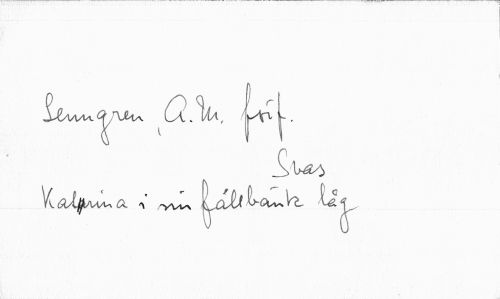 Lenngren, A.M. förf.
Svas
Katrina i sin fållbänk låg